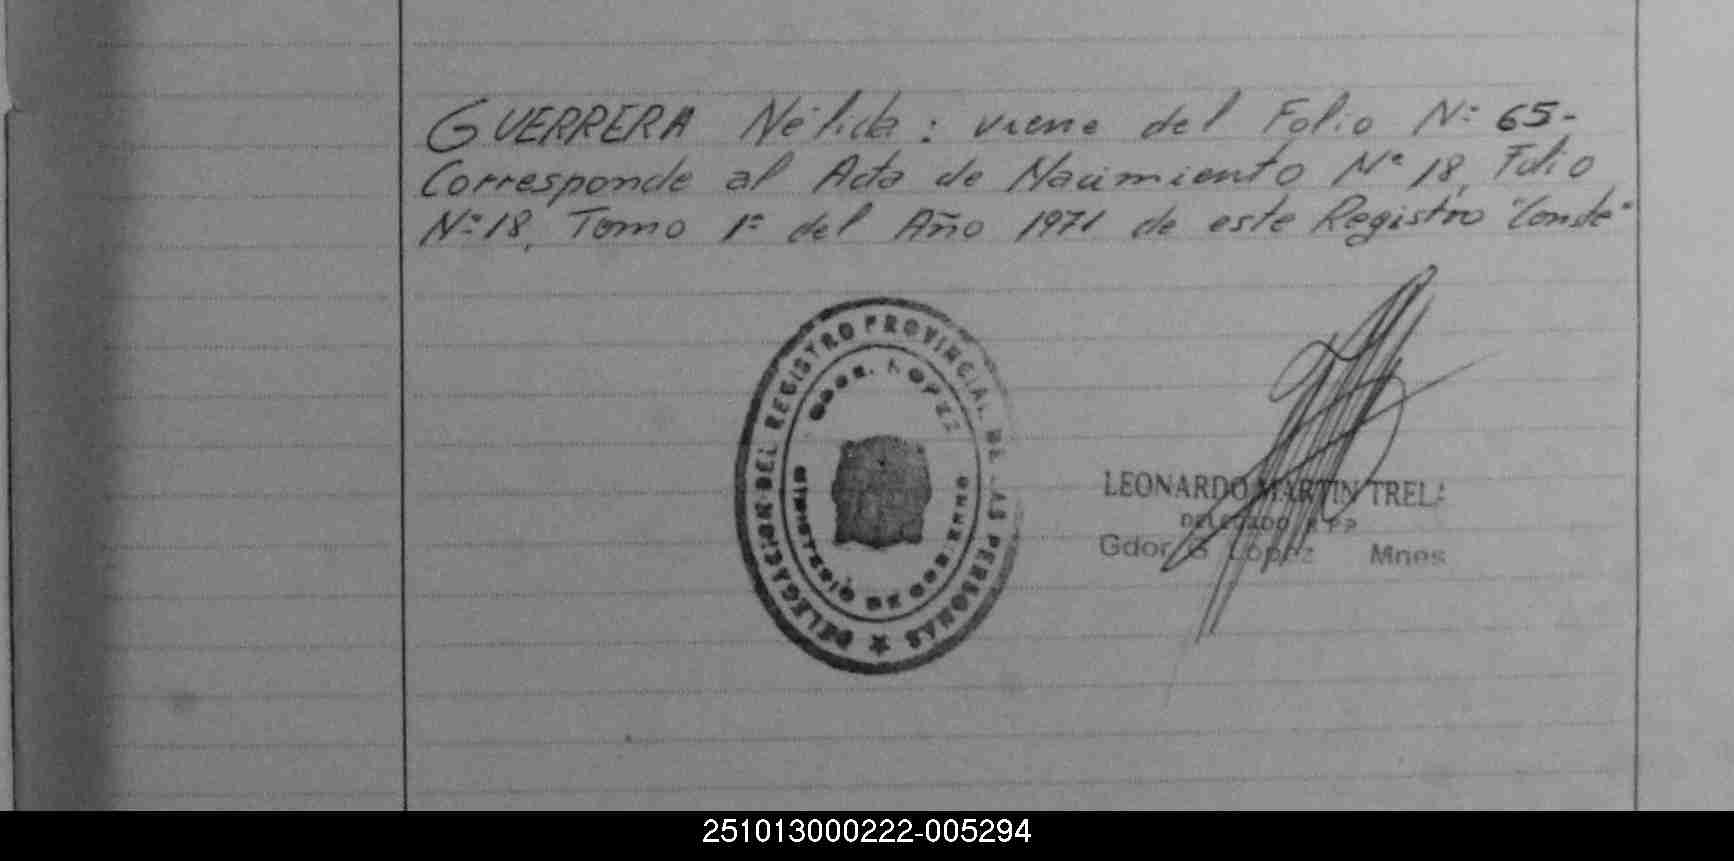 GUERRERA Nélida: viene del Folio Nº 65-
Corresponde al Acta de Nacimiento Nº 18, Folio
Nº 18, Tomo 1º del Año 1971 de este Registro "Conste"
DELEGACION DEL REGISTRO PROVINCIAL DE LAS PERSONAS
GDOR. LOPEZ
MINISTERIO DE GOBIERNO
LEONARDO MARTIN TRELA
DELEGADO R P P
Gdor G Lopez Mnes
251013000222-005294